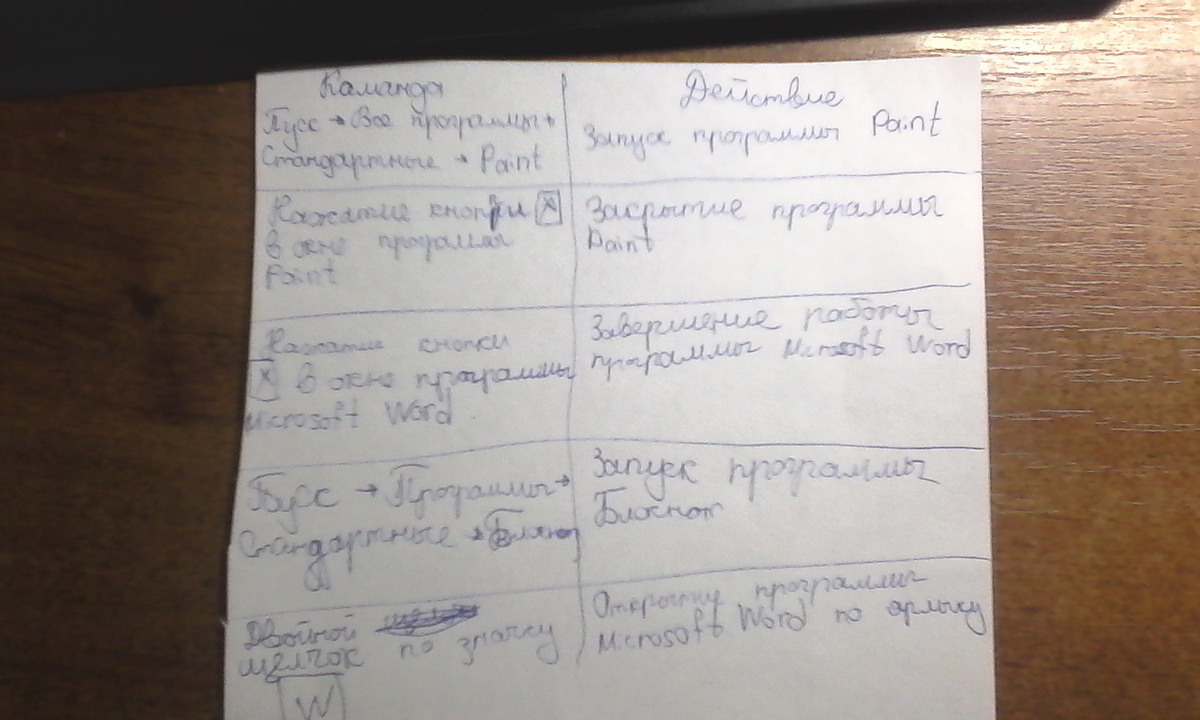 Каманда
Действие
Пусс → Все программы →
Стандартные → Paint
Запуск программы Paint
Нажатие кнопки X
в окне програмы
Paint
Закрытие программы
Paint
Нажатие кнопки
X в окне программы
Microsoft Word.
Завершение работы
программы Microsoft Word
Пусс → Программы →
Стандартные → Блокнот
Запуск программы
Блокнот
Двойной
щелчок по значку
W
Открытие программы
Microsoft Word по ярлыку